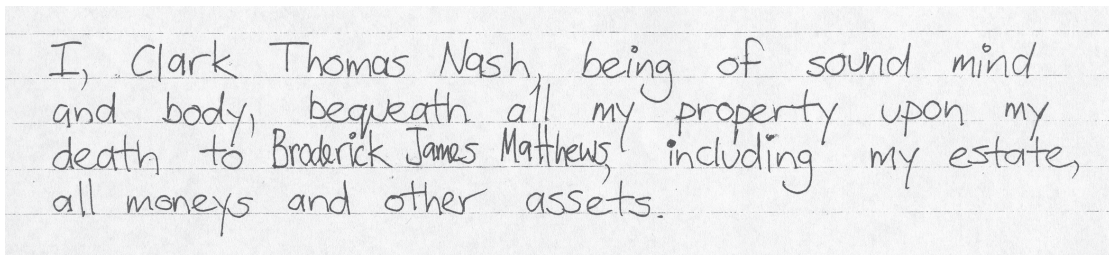 I, Clark Thomas Nash, being of sound mind
and body, bequeath all my property upon my
death to Broderick James Matthews, including my estate,
all moneys and other assets.